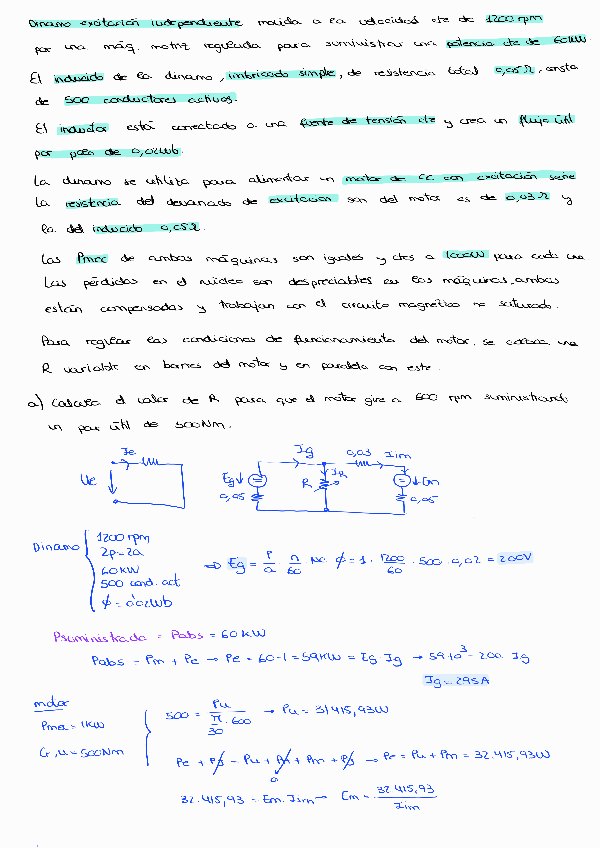 Dinamo excitación independiente movida a la velocidad cte de 1200 rpm
por una máq. motriz regulada para suministrar una potencia cte de 60kW.
El inducido de la dinamo, imbricado simple, de resistencia total 0,05Ω, consta
de 500 conductores activos.
El inductor está conectado a una fuente de tensión cte y crea un flujo útil
por polo de 0,02Wb.
La dinamo se utiliza para alimentar un motor de CC con excitación serie
La resistencia del devanado de excitación son del motor es de 0,03Ω y
la del inducido 0,05Ω.
Las Pmec de ambas máquinas son iguales y ctes a 1000W para cada una
Las pérdidas en el núcleo son despreciables en las máquinas, ambas
están compensadas y trabajan con el circuito magnético no saturado.
Para regular las condiciones de funcionamiento del motor, se coloca una
R variable en bornes del motor y en paralelo con este.
a) Calcula el valor de R para que el motor gire a 600 rpm suministrando
un par útil de 500Nm.
Ie
Ue
Ig 0,03 Iim
Eg IR R Em
0,05 0,05
Dinamo
1200 rpm
2p=2a
60kW
500 cond. act
ϕ = 0'02Wb
⇒ Eg = P/a · n/60 · Nc · ϕ = 1 · 1200/60 · 500 · 0,02 = 200V
Psuministrada = Pabs = 60kW
Pabs = Pm + Pe → Pe = 60-1 = 59kW = Eg Ig → 59·10³ = 200 · Ig
Ig = 295A
motor
Pmec = 1kW
Cr,u = 500Nm
500 = Pu / (π/30 · 600) → Pu = 31415,93W
Pe + = Pu + + Pm + → Pe = Pu + Pm = 32.415,93W
0
32.415,93 = Em · Iim → Em = 32.415,93 / Iim